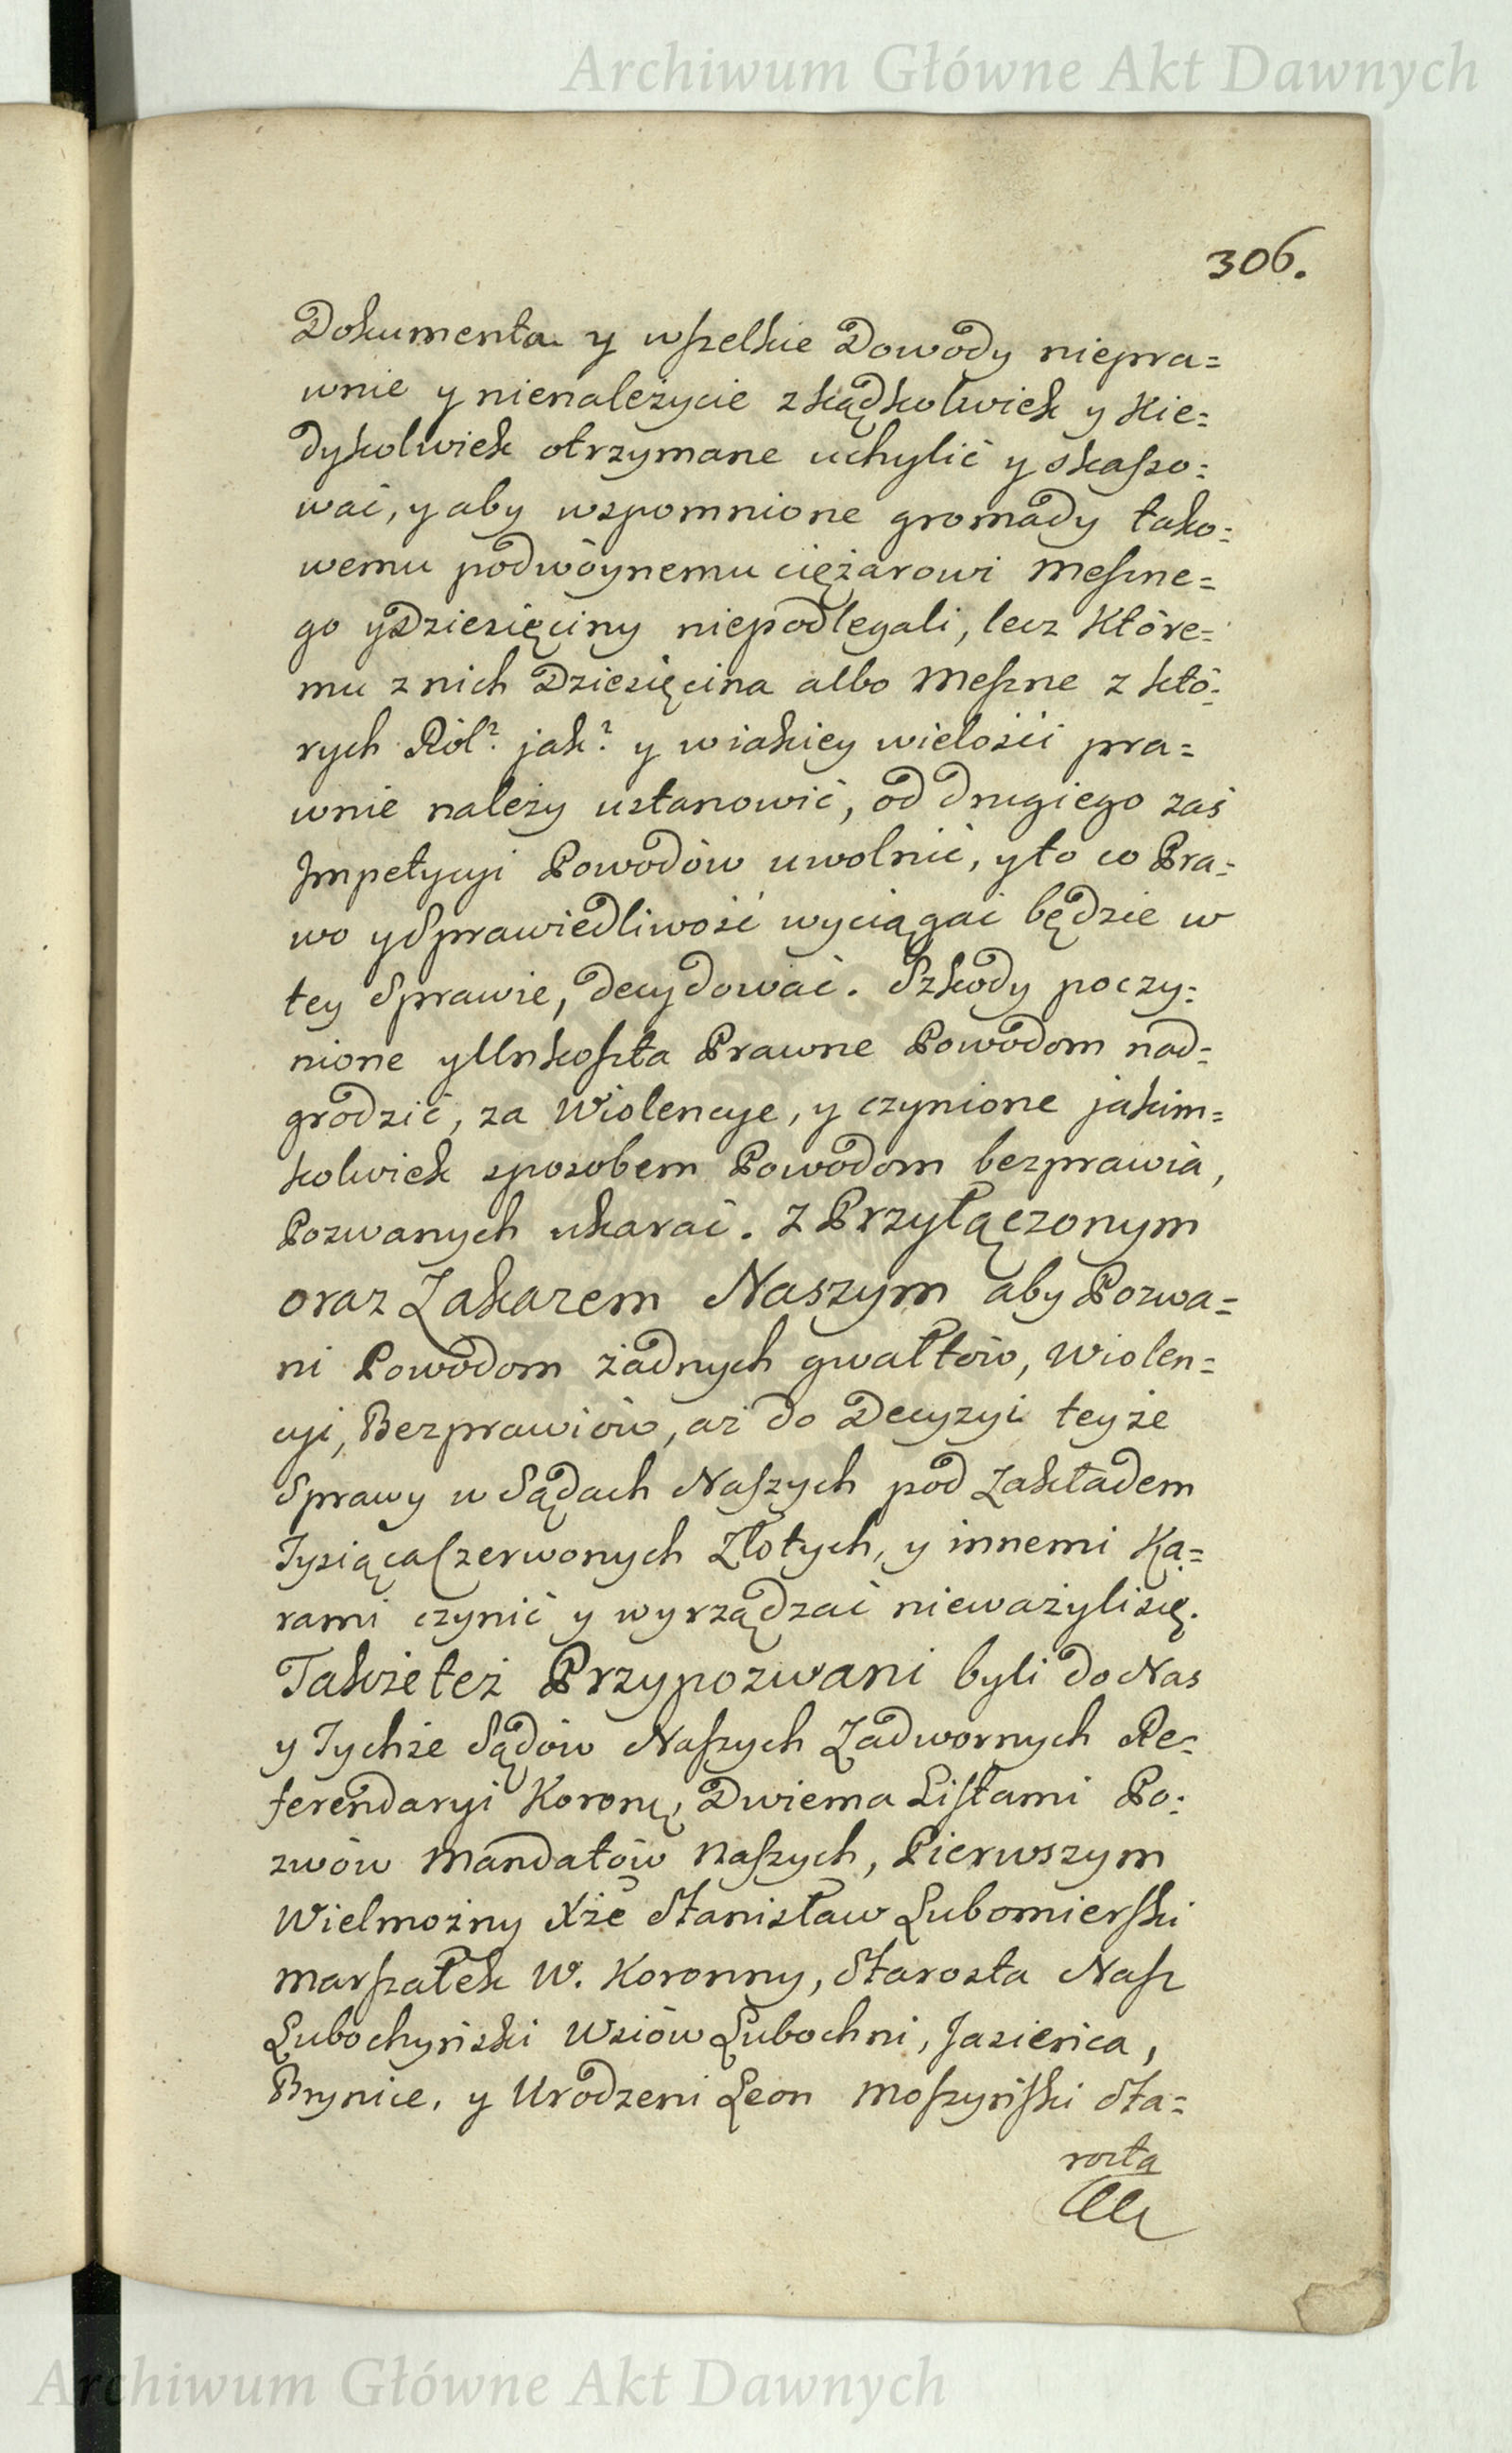 Archiwum Główne Akt Dawnych
306.
Dokumenta y wszelkie Dowody niepra=
wnie y nienależycie zkądkolwiek y Kie=
dykolwiek otrzymane uchylić y skaszo=
wać, y aby wspomnione gromady tako=
wemu podwóynemu ciężarowi Meszne=
go y Dziesięciny niepodlegali, lecz Które=
mu z nich Dziesięcina albo Meszne z któ=
rych Ról? jak? y w iakiey wielości pra=
wnie należy ustanowić, od drugiego zaś
Jmpetycyi Powodów uwolnić, y to co Pra=
wo y Sprawiedliwość wyciągać będzie w
tey Sprawie, decydować. Szkody poczy=
nione y Unkoszta Prawne Powodom nad=
grodzić, za Wiolencye, y czynione jakim=
kolwiek sposobem Powodom bezprawia,
Pozwanych ukarać. Z Przyłączonym
oraz Zakazem Naszym aby Pozwa=
ni Powodom żadnych gwałtów, Wiolen=
cyi, Bezprawiów, aż do Decyzyi teyże
Sprawy w Sądach Naszych pod Zakładem
Tysiąca Czerwonych Złotych, y innemi Ka=
rami czynić y wyrządzać nieważyli się.
Także też Przypozwani byli do Nas
y Tychże Sądów Naszych Zadwornych Re=
ferendaryi Koronę, Dwiema Listami Po=
zwów Mandatów Naszych, Pierwszym
Wielmożny Xże Stanisław Lubomierski
Marszałek W. Koronny, Starosta Nasz
Lubochyński Wsiów Lubochni, Jasienica,
Brynice, y Urodzeni Leon Moszyński Sta=
rosta
Archiwum Główne Akt Dawnych